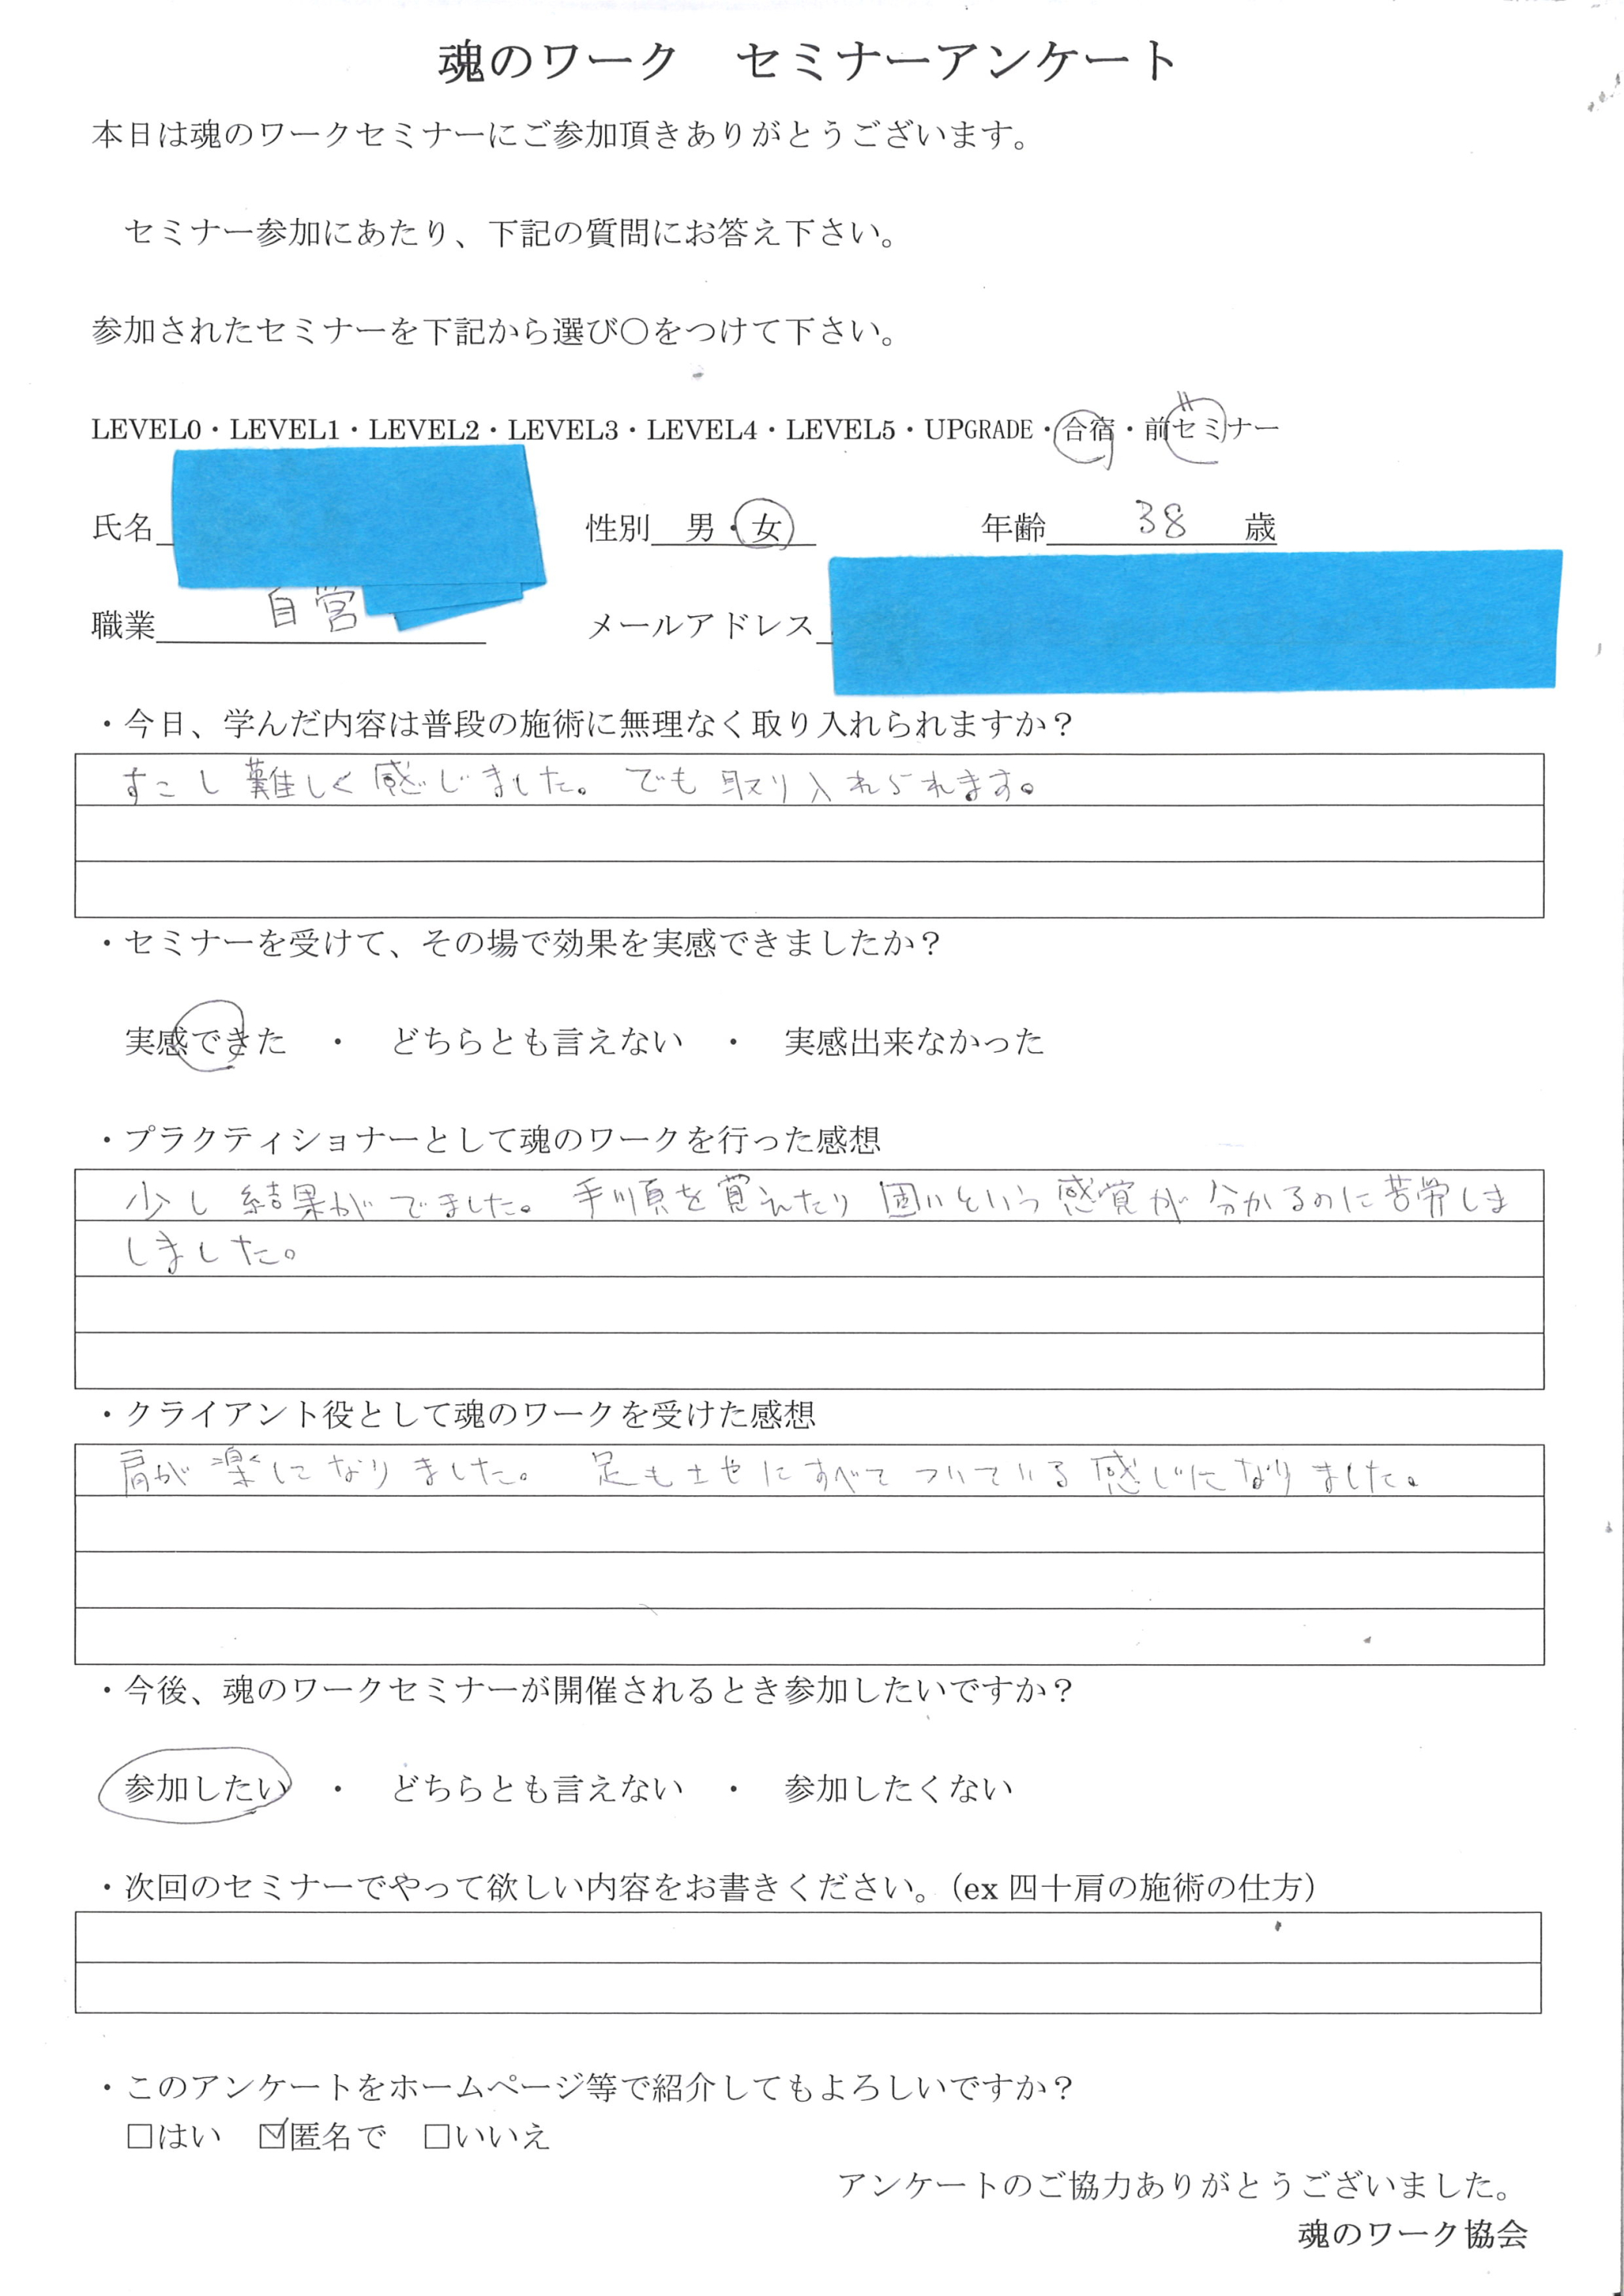 魂のワーク　セミナーアンケート
本日は魂のワークセミナーにご参加頂きありがとうございます。
セミナー参加にあたり、下記の質問にお答え下さい。
参加されたセミナーを下記から選び〇をつけて下さい。
LEVEL0・LEVEL1・LEVEL2・LEVEL3・LEVEL4・LEVEL5・UPGRADE・合宿・前セミナー
氏名　性別　男・女　年齢　38　歳
職業　自営　メールアドレス
・今日、学んだ内容は普段の施術に無理なく取り入れられますか？
すこし難しく感じました。でも取り入れられます。
・セミナーを受けて、その場で効果を実感できましたか？
実感できた　・　どちらとも言えない　・　実感出来なかった
・プラクティショナーとして魂のワークを行った感想
少し結果がでました。手順を覚えたり固いという感覚が分かるのに苦労しま
しました。
・クライアント役として魂のワークを受けた感想
肩が楽になりました。足も土地にすべてついている感じになりました。
・今後、魂のワークセミナーが開催されるとき参加したいですか？
参加したい　・　どちらとも言えない　・　参加したくない
・次回のセミナーでやって欲しい内容をお書きください。（ex 四十肩の施術の仕方）
・このアンケートをホームページ等で紹介してもよろしいですか？
□はい　☑匿名で　□いいえ
アンケートのご協力ありがとうございました。
魂のワーク協会